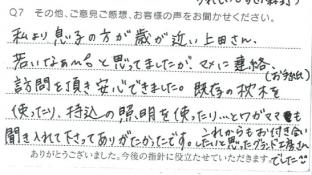 Q7 その他、ご意見ご感想、お客様の声をお聞かせください。
私より息子の方が歳が近い上田さん、
若いなぁ〜。と思ってましたが、マメに連絡、(お手紙)
訪問を頂き安心できました。既存の枕木を
使ったり、持込の照明を使ったり…とワガママも
聞き入れて下さってありがたかったです。これからもお付き合い
したいと思ったグランド工房さん
でした
ありがとうございました。今後の指針に役立たせていただきます。